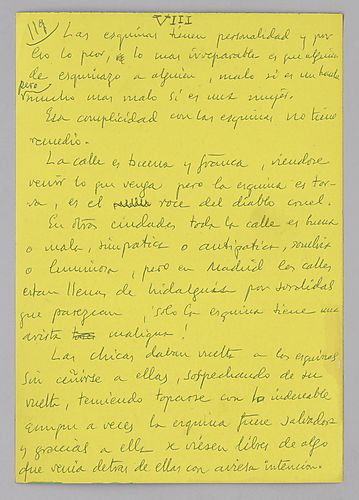 VIII
119
Las esquinas tienen personalidad y por
eso lo peor, lo mas irreparable es que alguien
dé esquinazo a alguien, malo si es un hombre
pero mucho mas malo si es una mujer.
Esa complicidad con las esquinas no tiene
remedio.
La calle es buena y franca, viendose
venir lo que venga pero la esquina es tor-
va, es el roce del diablo cruel.
En otras ciudades toda la calle es buena
o mala, simpatica o antipatica, sombria
o luminosa, pero en Madrid las calles
estan llenas de hidalguia por sordidas
que parezcan, ¡solo la esquina tiene una
arista maligna!
Las chicas daban vuelta a las esquinas
sin ceñirse a ellas, sospechando de su
vuelta, temiendo toparse con lo indeseable
aunque a veces la esquina fuese salvadora
y gracias a ella se viesen libres de algo
que venia detras de ellas con aviesa intencion.